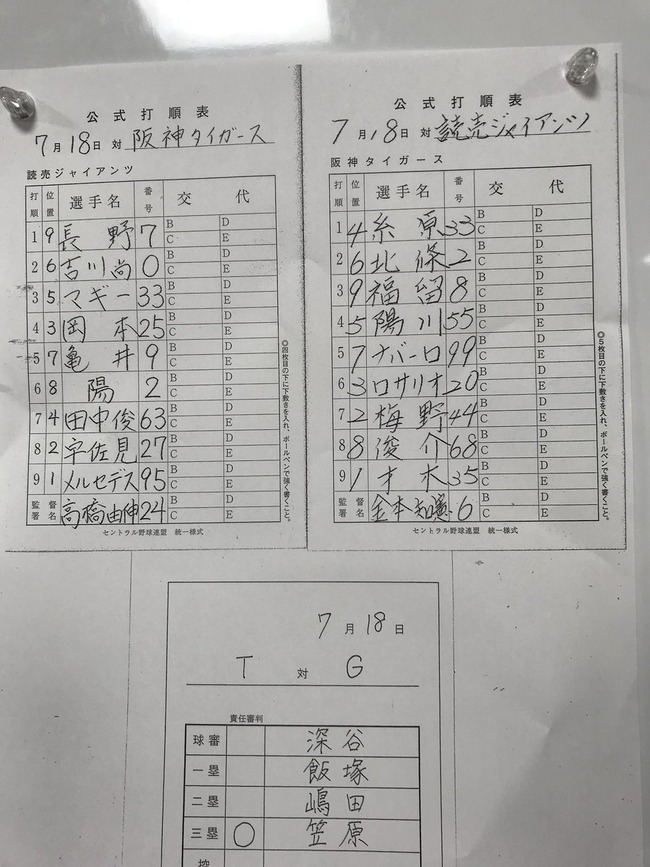 公式打順表
7月18日 対 阪神タイガース
読売ジャイアンツ
打順 位置 選手名 番号 交代
1 9 長野 7 B D C E
2 6 吉川尚 0 B D C E
3 5 マギー 33 B D C E
4 3 岡本 25 B D C E
5 7 亀井 9 B D C E
6 8 陽 2 B D C E
7 4 田中俊 63 B D C E
8 2 宇佐見 27 B D C E
9 1 メルセデス 95 B D C E
監督署名 高橋由伸 24 B D C E
◎四枚目の下に下敷きを入れ、ボールペンで強く書くこと。
セントラル野球連盟 統一様式
公式打順表
7月18日 対 読売ジャイアンツ
阪神タイガース
打順 位置 選手名 番号 交代
1 4 糸原 33 B D C E
2 6 北條 2 B D C E
3 9 福留 8 B D C E
4 5 陽川 55 B D C E
5 7 ナバーロ 99 B D C E
6 3 ロサリオ 20 B D C E
7 2 梅野 44 B D C E
8 8 俊介 68 B D C E
9 1 才木 35 B D C E
監督署名 金本知憲 6 B D C E
◎5枚目の下に下敷きを入れ、ボールペンで強く書くこと。
セントラル野球連盟 統一様式
7月18日
T 対 G
責任審判
球審 深谷
一塁 飯塚
二塁 嶋田
三塁 ○ 笠原
控